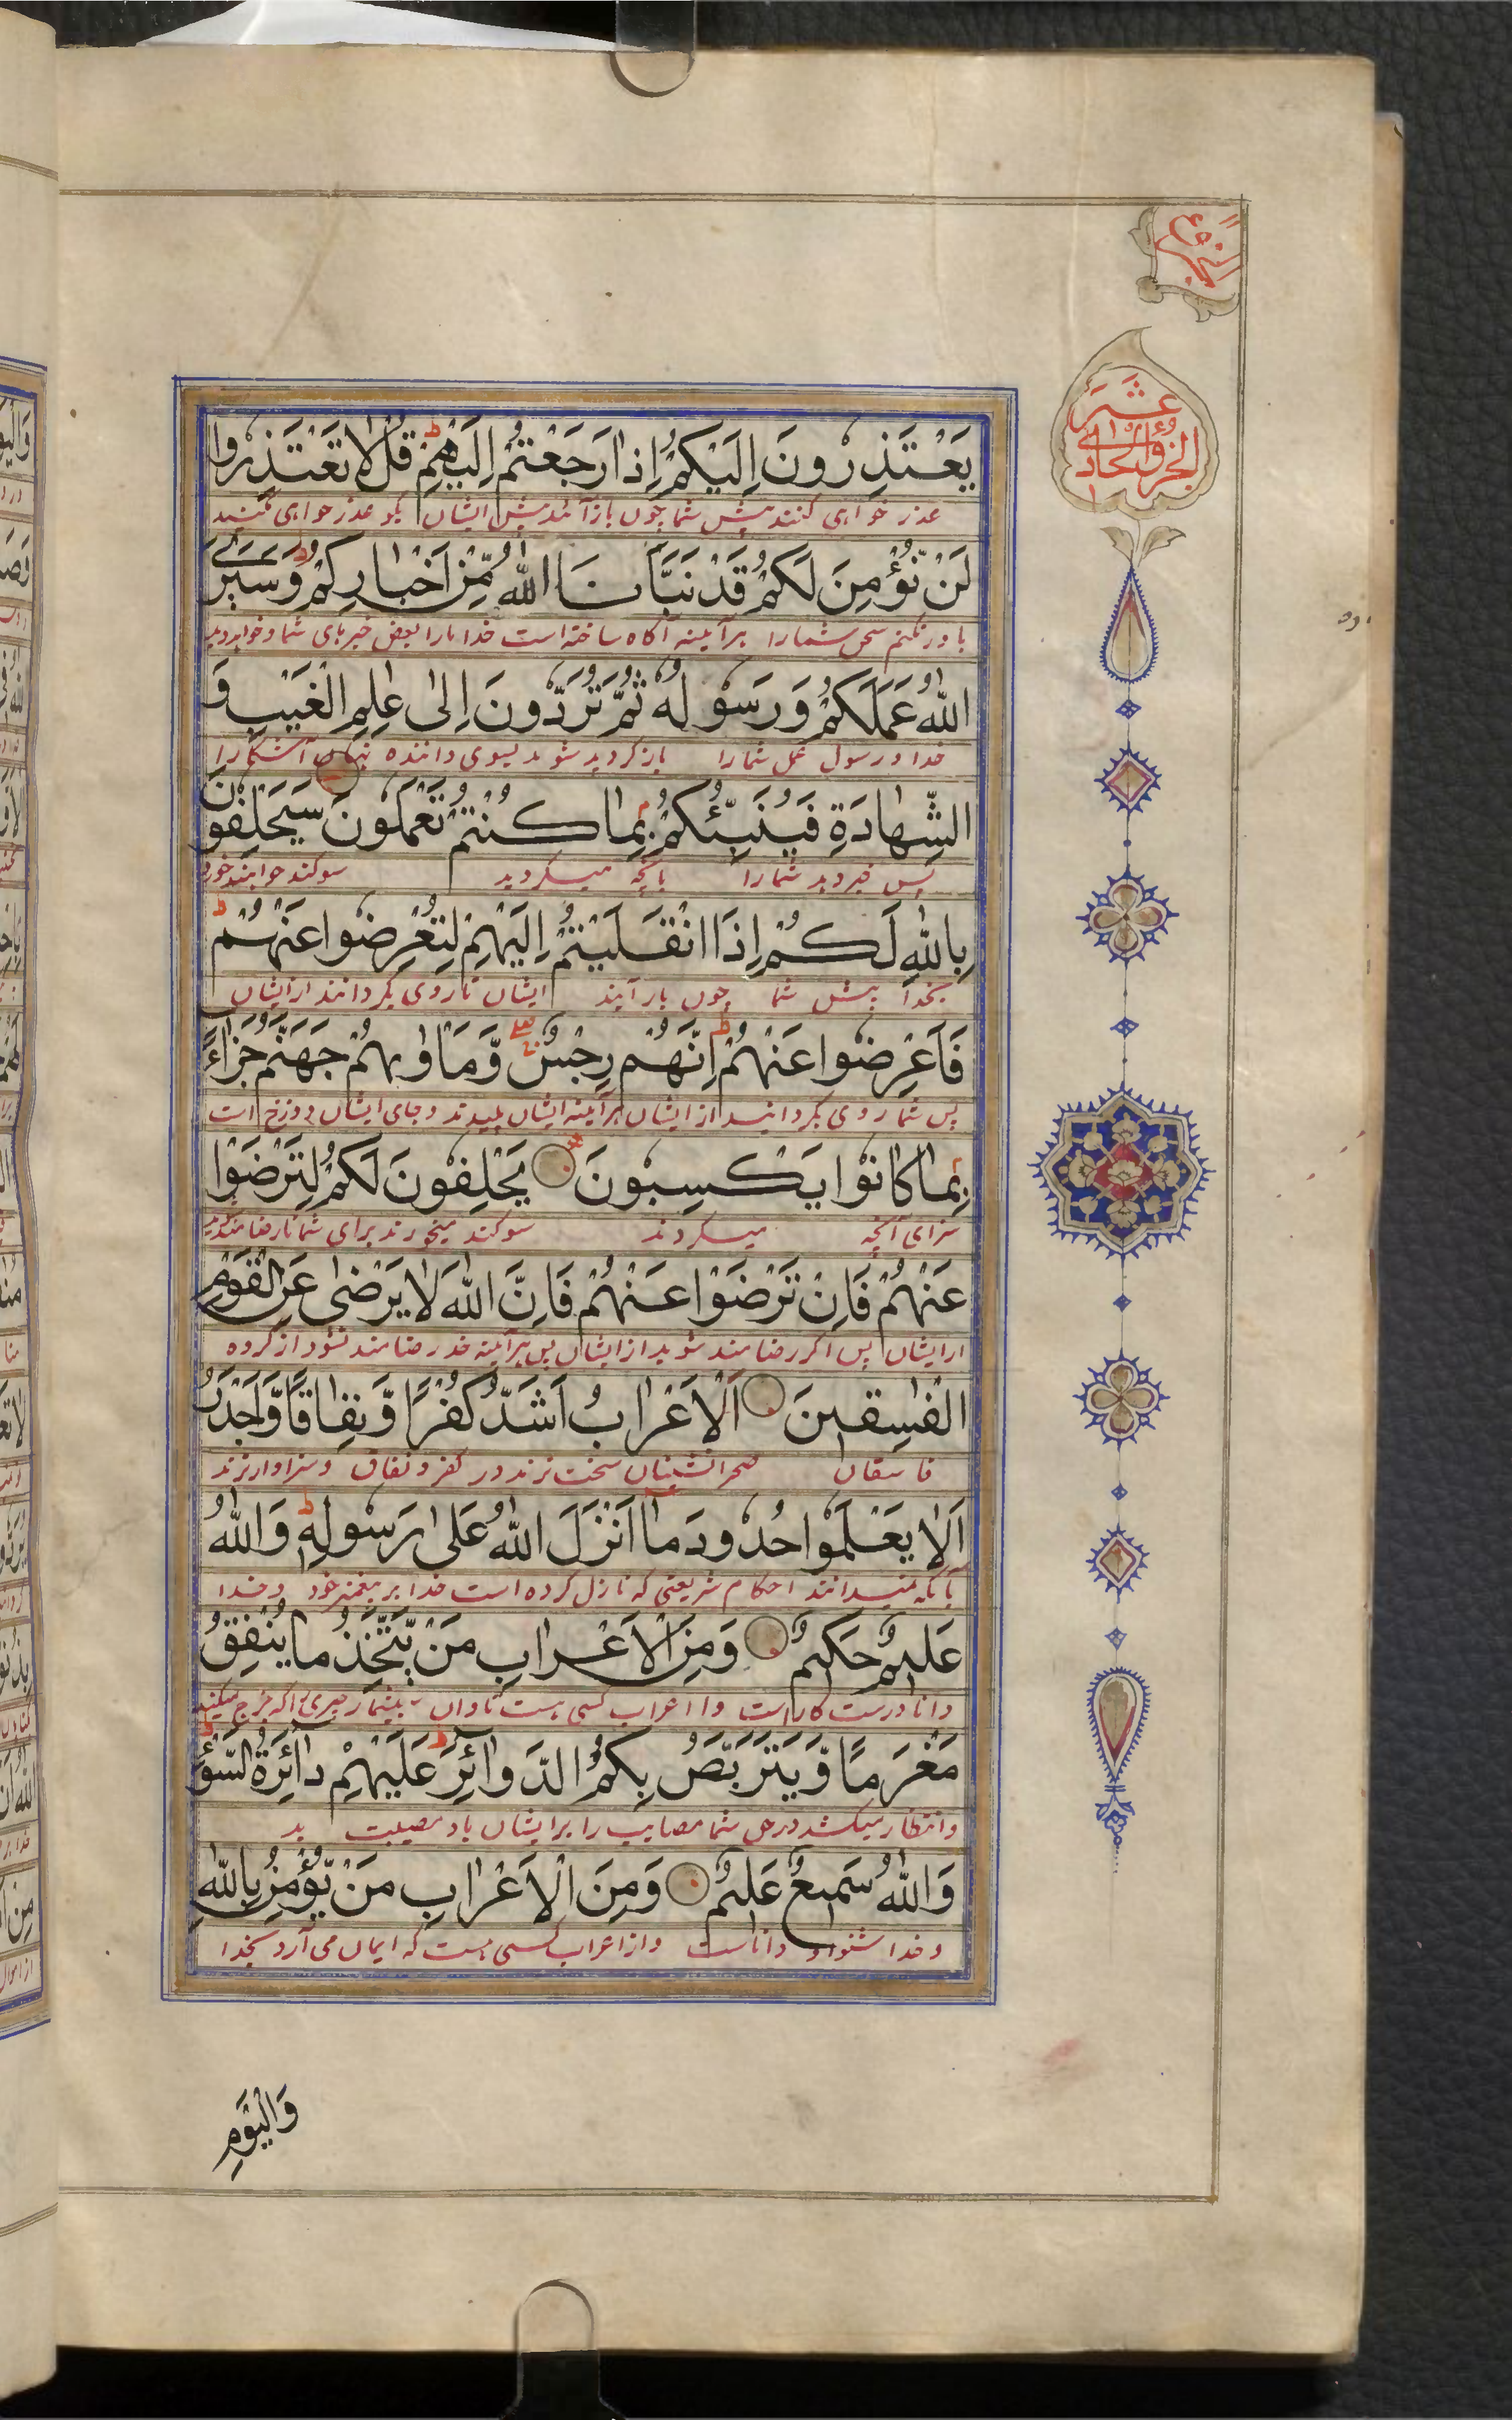 الجزو الحادی
عشر
يَعْتَذِرُونَ اِلَيْكُمْ اِذَا رَجَعْتُمْ اِلَيْهِمْ ط قُلْ لَا تَعْتَذِرُوا
عذر خواهی کنند پیش شما چون باز آئید پیش ایشان بگو عذر خواهی مکنید
لَنْ نُؤْمِنَ لَكُمْ قَدْ نَبَّاَنَا اللّٰهُ مِنْ اَخْبَارِكُمْ وَسَيَرَى
باور نکنیم سخن شما را هر آئینه آگاه ساخته است خدا ما را بعض خبرهای شما و خواهد دید
اللّٰهُ عَمَلَكُمْ وَرَسُولُهُ ثُمَّ تُرَدُّونَ اِلٰى عٰلِمِ الْغَيْبِ وَ
خدا و رسول عمل شما را باز گردید شوید بسوی داننده نهان آشکارا
الشَّهَادَةِ فَيُنَبِّئُكُمْ بِمَا كُنْتُمْ تَعْمَلُونَ سَيَحْلِفُونَ
پس خبر دهد شما را بانچه میکردید سوکند خواهند خورد
بِاللّٰهِ لَكُمْ اِذَا انْقَلَبْتُمْ اِلَيْهِمْ لِتُعْرِضُوا عَنْهُمْ ط
بخدا پیش شما چون باز آیند ایشان تا روی بگردانند از ایشان
فَاَعْرِضُوا عَنْهُمْ ط اِنَّهُمْ رِجْسٌ وَّمَاْوٰىهُمْ جَهَنَّمُ جَزَاءً
پس شما روی بگردانید از ایشان هر آئینه ایشان پلیدند و جای ایشان دوزخ است
بِمَا كَانُوا يَكْسِبُونَ يَحْلِفُونَ لَكُمْ لِتَرْضَوْا
سزای آنچه میکردند سوکند میخورند برای شما تا رضامند شوید
عَنْهُمْ فَاِنْ تَرْضَوْا عَنْهُمْ فَاِنَّ اللّٰهَ لَا يَرْضٰى عَنِ الْقَوْمِ
از ایشان پس اگر رضامند شوید از ایشان پس هر آئینه خدا رضامند نشود از گروه
الْفٰسِقِينَ اَلْاَعْرَابُ اَشَدُّ كُفْرًا وَّنِفَاقًا وَّاَجْدَرُ
فاسقان صحرا نشینان سخت ترند در کفر و نفاق و سزاوار ترند
اَلَّا يَعْلَمُوا حُدُودَ مَا اَنْزَلَ اللّٰهُ عَلٰى رَسُولِهِ ط وَاللّٰهُ
بانکه نمیدانند احکام شریعتی که نازل کرده است خدا بر پیغمبر خود و خدا
عَلِيمٌ حَكِيمٌ وَمِنَ الْاَعْرَابِ مَنْ يَّتَّخِذُ مَا يُنْفِقُ
دانا درست کار است و از اعراب کسی هست که تاوان میشمارد چیزی را که خرج میکند
مَغْرَمًا وَّيَتَرَبَّصُ بِكُمُ الدَّوَائِرَ ط عَلَيْهِمْ دَائِرَةُ السَّوْءِ ط
و انتظار میکشد در حق شما مصایب را بر ایشان باد مصیبت بد
وَاللّٰهُ سَمِيعٌ عَلِيمٌ وَمِنَ الْاَعْرَابِ مَنْ يُّؤْمِنُ بِاللّٰهِ
و خدا شنوا و داناست و از اعراب کسی هست که ایمان می آرد بخدا
وَالْيَوْمِ